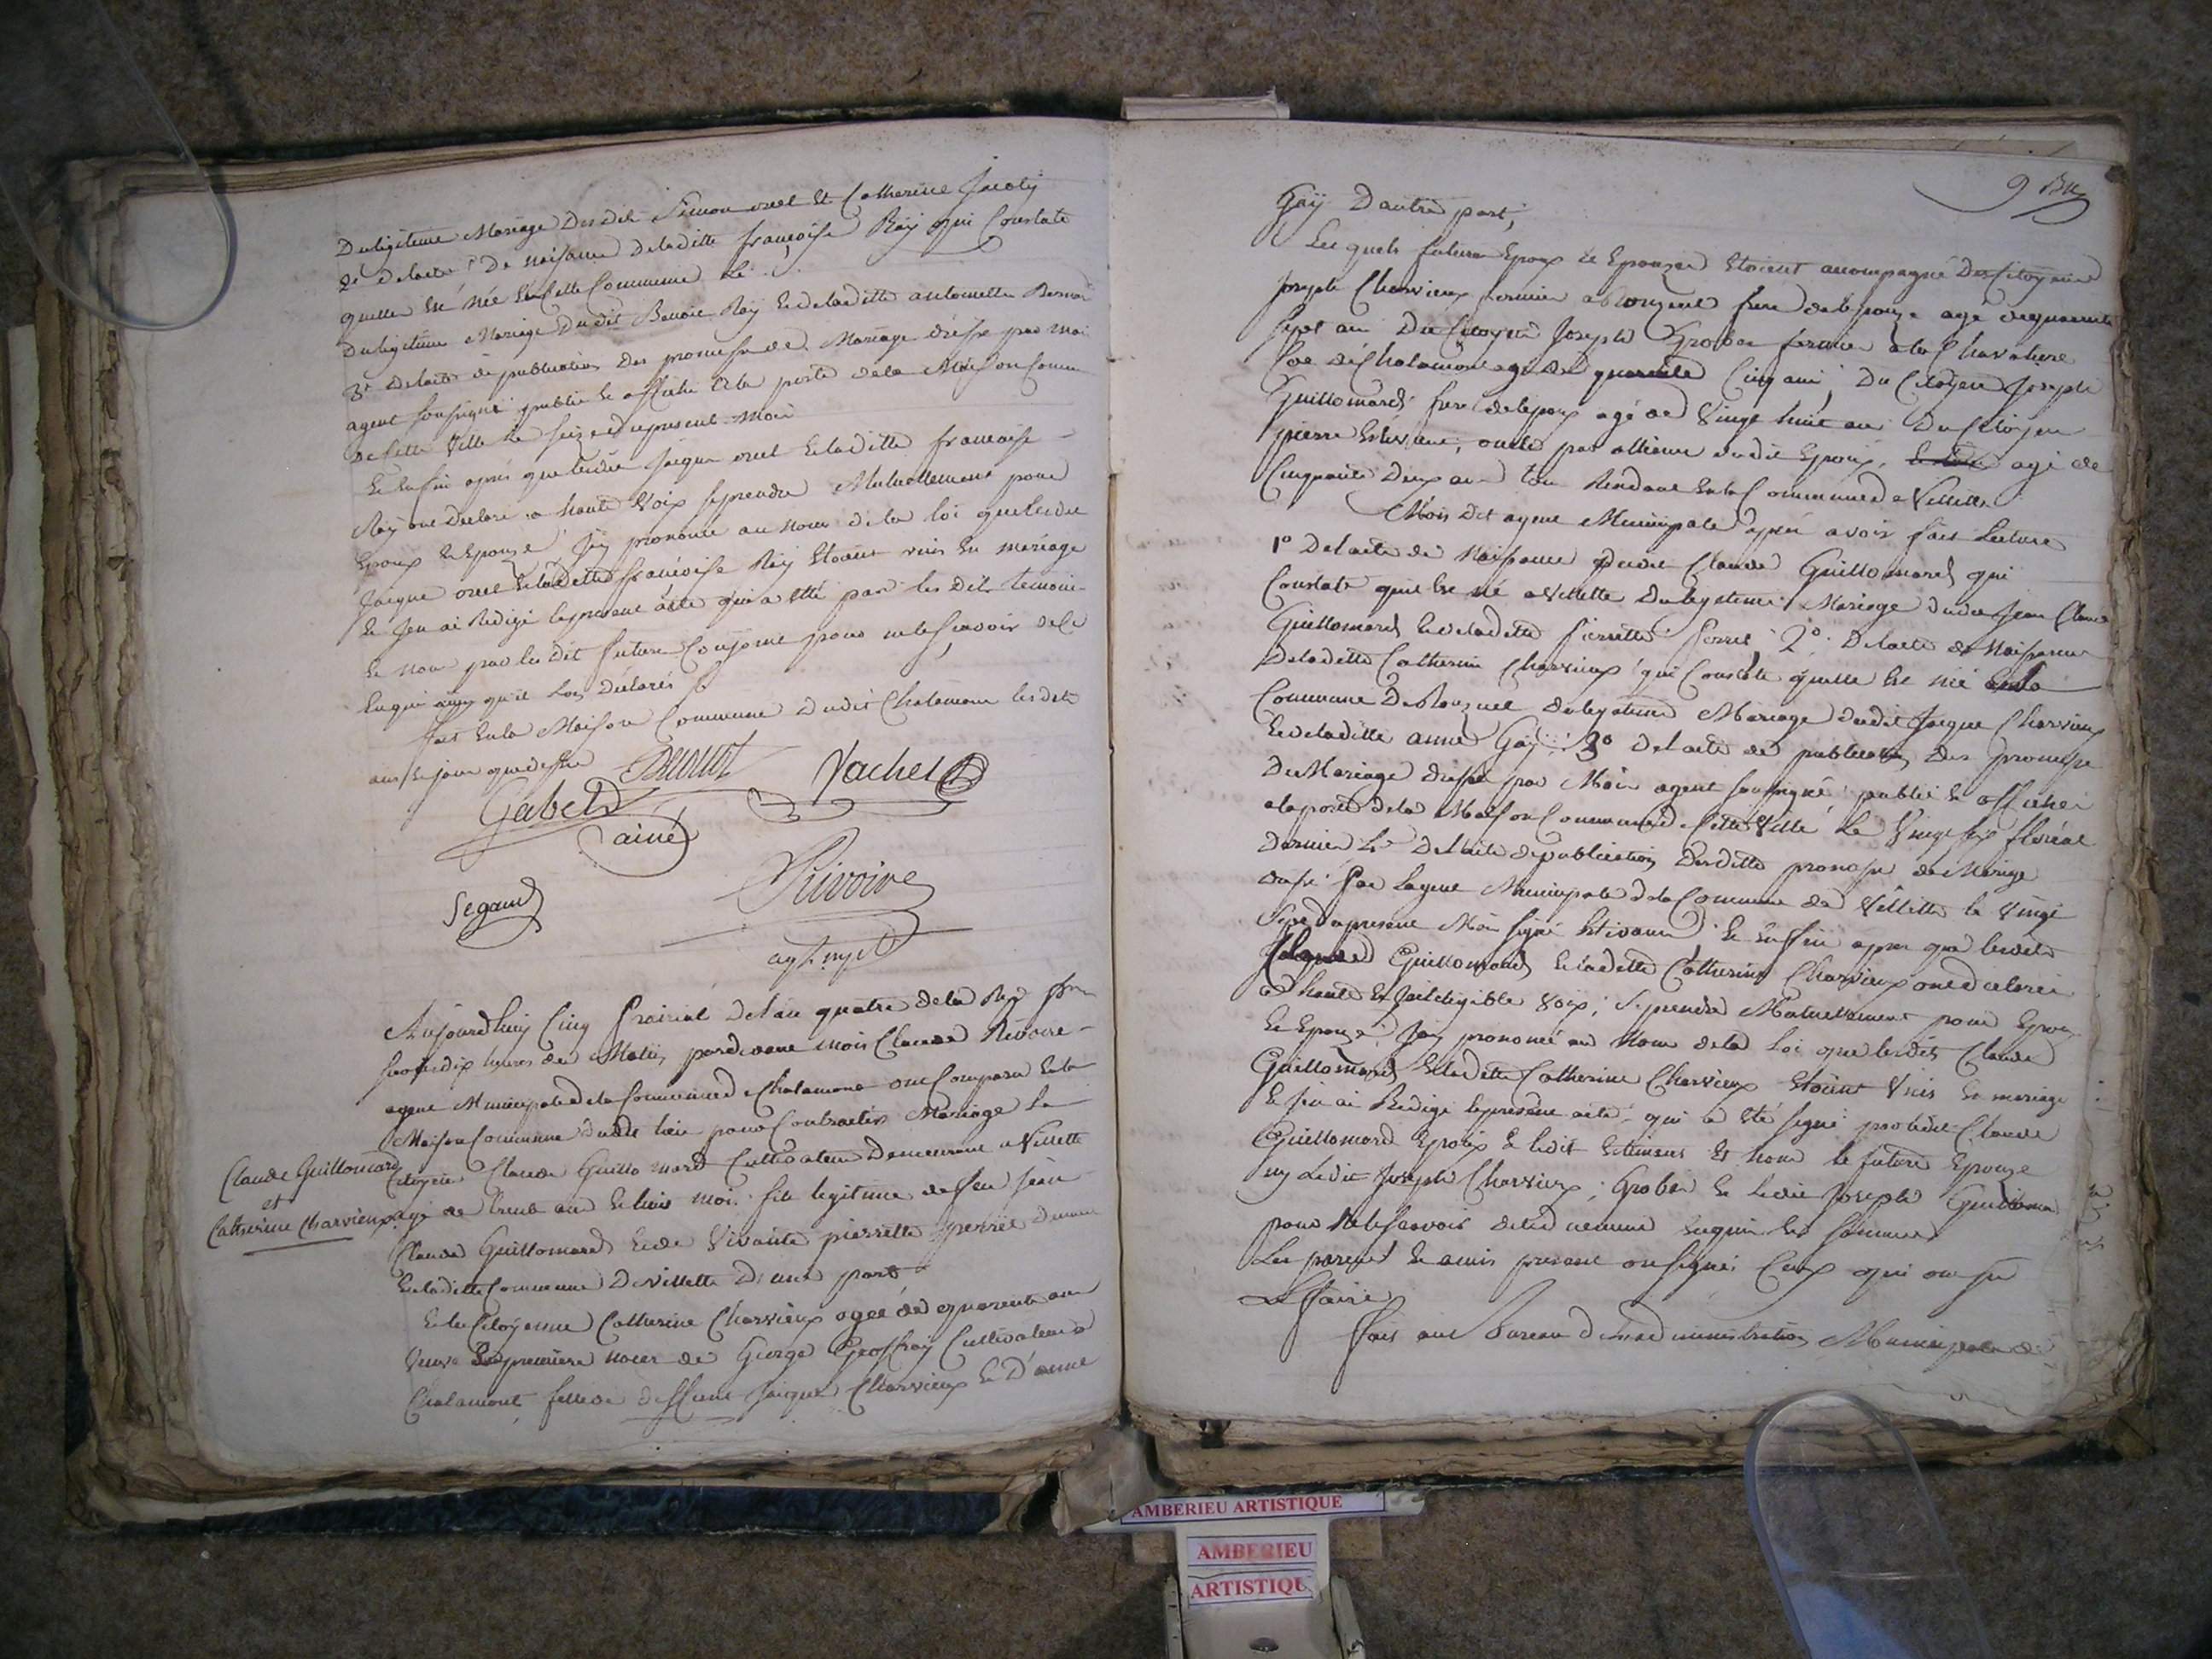 Du legitime Mariage Desdit Simon orcel Et Catherine Jacoty
2e de lacte De naissance deladitte françoise Rey qui Constate
quelle Est née En Cette Commune Le
Du legitime Mariage Dudit Benoit Rey Et deladitte antoinette Bernard
3e De lacte de publication Des promesses de Mariage dressé par moi
agent soussigné publié Et affiché a la porte de la Maison Commune
de Cette Ville le seize du present Mois
Et Enfin après que ledit Jaque orcel Et laditte francoise
Rey ont declaré a haute Voix se prendre Mutuellement pour
Epoux Et Epouze J'ay prononcé au nom de la loi que ledit
Jaque orcel Et laditte françoise Rey Etoient unis En mariage
Et J'en ai Redigé le present acte qui a Eté par les Dits temoins
Et non par les dit future Conjoint pour ne le sçavoir de ce
Enquis ainsy qu'il Lon Déclarés
fait En la Maison Commune Dudit Chalamont les dits
an Et jour que dessus
Vachet
Gabet
ainé
Segaud
Rivoire
agt mpl
Aujourdhuy Cinq Prairial de lan quatre de la Rep frse
sur les dix heures du Matin pardevant moi Claude Rivoire
agent Municipal de la Commune de Chalamont ont Comparu En la
Maison Commune dudit lieu pour Contracter Mariage Le
Citoyen Claude Guillomard Cultivateur Demeurant a Villette
agé de trente ans Et huit mois fils legitime de feu Jean
Claude Guillomard Et de Vivante pierrette perret Demeurant
En laditte Commune De Villette D'une part
Claude Guillomard
et
Catherine Charvieux
Et la Citoyenne Catherine Charvieux agée de quarente ans
Veuve En première noces de George Geoffray Cultivateur a
Chalamont fille de deffunt Jaque Charvieux Et D'anne
9 Bis
Gay D'autre part,
Les quels future Epoux Et Epouze Etoient accompagné Des Citoyens
Joseph Charvieux fermier a Rouzuel frere de lepouze agé de quarente
sept ans Du Citoyen Joseph Grobon fermier a la Chavatiere
de Chalamont agé de quarente Cinq ans, Du Citoyen Joseph
Guillomard frere de lepoux agé de Vingt huit ans Du Citoyen
pierre Estivene, oncle par alliance dudit Epoux, agé de
Cinquante Deux ans tou Residant En la Commune de Villette
Mois Dit agent Municipale après avoir fait Lecture
1° De lacte de Naissance dudit Claude Guillomard qui
Constate quil Est né a Villette Du legitime Mariage dudit Jean Claude
Guillomard Et deladitte Pierrette Perret, 2° De lacte de Naissance
Deladitte Catherine Charvieux qui Constate quelle Est née En la
Commune De Rouzuel Du legitime Mariage dudit Jaque Charvieux
Et deladitte anne Gay; 3° De lacte de publication Des promesse
De Mariage dressé par Moi agent soussigné publié Et affiché
a la porte de la Maison Commune de Cette Ville Le Vingt six floréal
dernier 4e De lacte de publication Desdittes promesse de Mariage
dressé par Lagent Municipale de la Commune de Villette le Vingt
du present Mois signé Estivene, Et Enfin apres que ledit
Guillomard Et laditte Catherine Charvieux ont declaré
a haute Et Inteligible Voix, se prendre Mutuellement pour Epoux
Et Epouze, J'ay prononcé au Nom de la Loi que ledits Claude
Guillomard Et laditte Catherine Charvieux Etoient Unis En mariage
Et J'en ai Redigé le present acte, qui a Eté signé par ledit Claude
Guillomard Epoux Et ledit Estivene Et non le future Epouze
ny Ledit Joseph Charvieux, Grobon Et Ledit Joseph Guillomard
pour Ne le sçavoir de ce Enquis Et Sommé
Les parent Et amis present on signé Ceux qui on su
Le faire
fait au Bureau de l'administration Municipale de
AMBERIEU ARTISTIQUE
AMBERIEU
ARTISTIQU